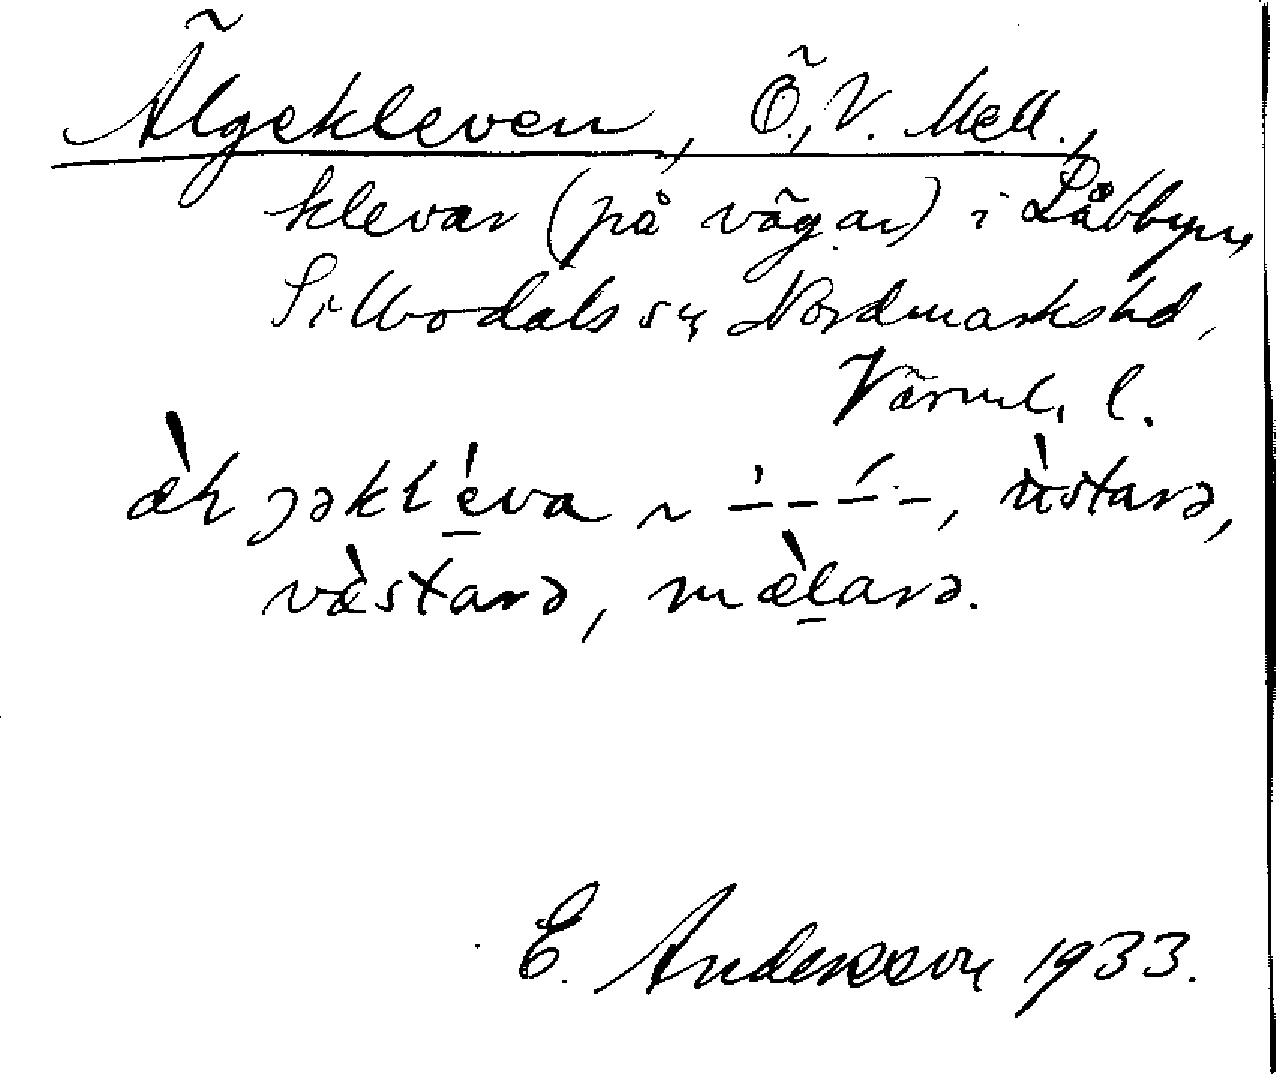 Älgekleven, Ö., V. Mell.,
klevar (på vägar) i Låbbyn,
Silbodals sn, Nordmarks hd,
Värml. l.
æ̀lgəkléva ~ –̀ – –́ –, ùstarə,
væ̀starə, mæ̀larə.
E. Andersson 1933.